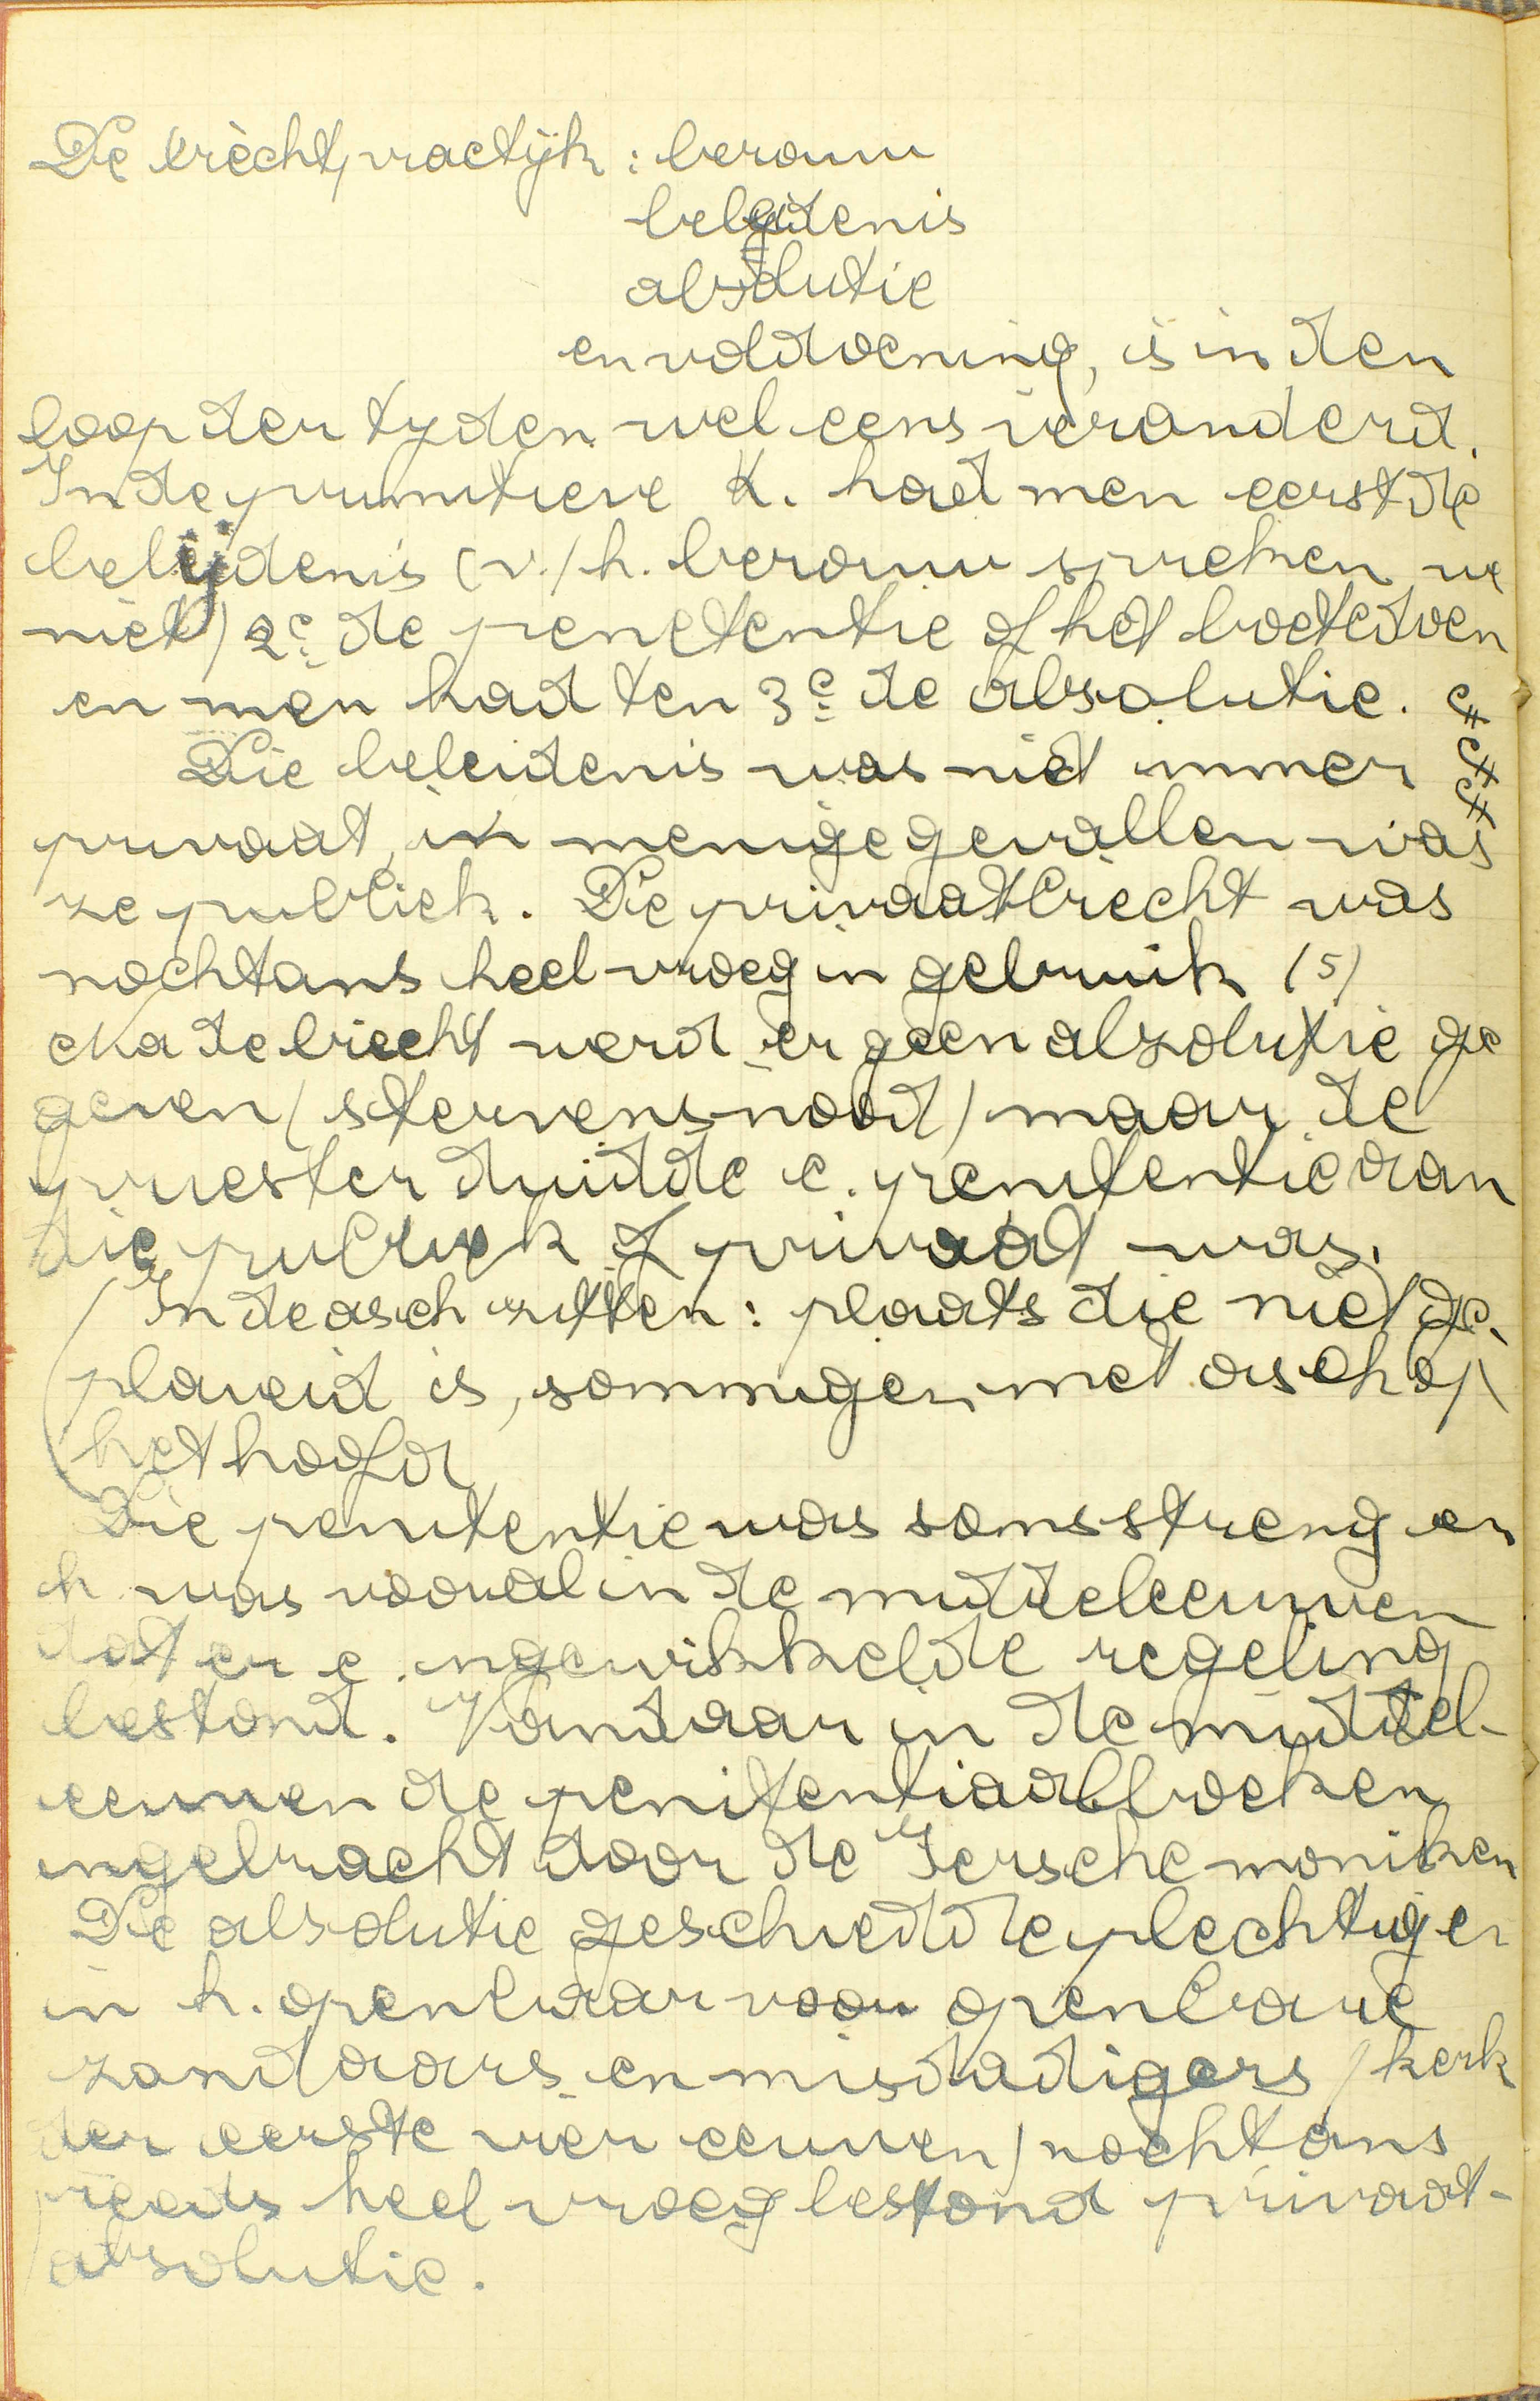 De biechtpractijk : berouw
belijdenis
absolutie
en voldoening, is in den
loop der tijden wel eens veranderd.
In de primitieve K. had men eerst de
belijdenis (v./h. berouw spreken we
niet) 2e de penetentie of het boetedoen
en men had ten 3e de absolutie.
Die beleidenis was niet immer
privaat, in menige gevallen was
ze publiek. De privaatbiecht was
nochtans heel vroeg in gebruik (5)
Na de biecht werd er geen absolutie ge
geven (stervensnood) maar de
priester duidde e. penitentie aan
die publiek of privaat was.
(In de asch zitten : plaats die niet ge-
plaveid is, sommigen met asch op
het hoofd
Die penitentie was soms streng en
h. was vooral in de middeleeuwen
dat er e. ingewikkelde regeling
bestond. Vandaar in de middel-
eeuwen de penitentiaalboeken
ingebracht door de Iersche moniken
De absolutie geschiedde plechtiger
in h. openbaar voor openbare
zondaars en misdadigers (kerk
der eerste vier eeuwen) nochtans
reeds heel vroeg bestond privaat-
absolutie.